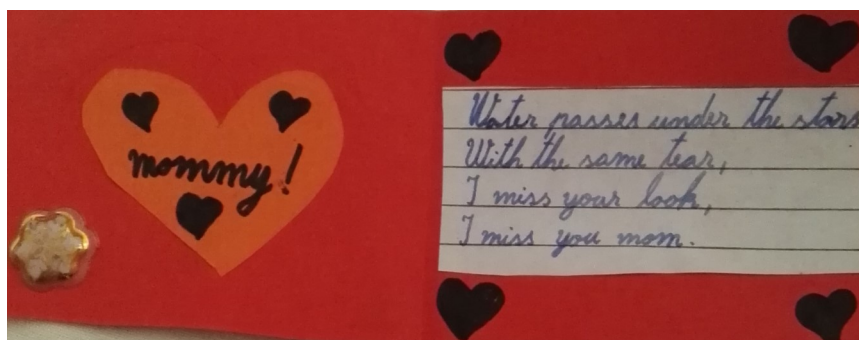 mommy!
Water passes under the stars
With the same tear,
I miss your look,
I miss you mom.